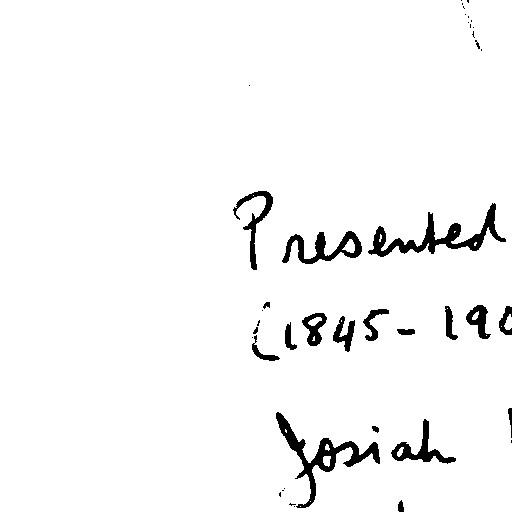 Presented
(1845-190
Josiah